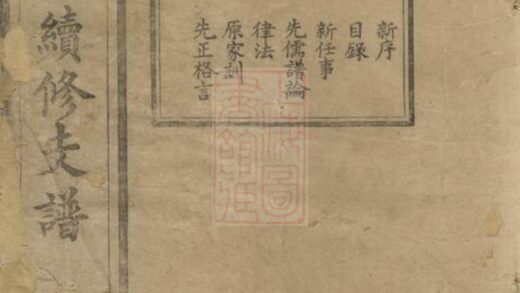 新序
目錄
新任事
先儒譜論
律法
原家訓
先正格言
續修支譜